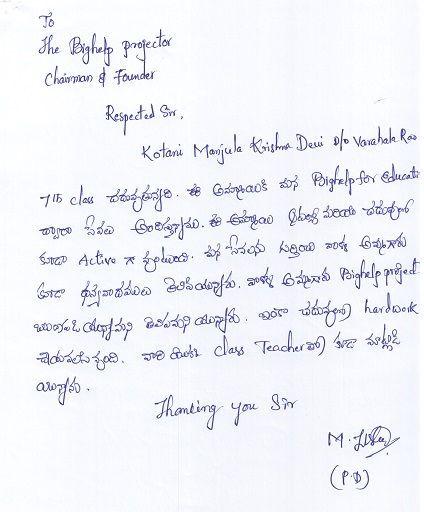 To
The Bighelp projector
Chairman & Founder
Respected Sir,
Kotani Manjula Krishna Devi D/o Varahala Rao
7th class చదువుతున్నది. ఈ అమ్మాయికి మన Bighelp for Educati
ద్వారా సేవలు అందిస్తున్నాము. ఈ అమ్మాయి మరియు చదువులో
కూడా Active గా వుంటుంది. మన సేవలను వాళ్ళ అమ్మగారు
కూడా ధన్యవాదములు తెలియ. వాళ్ళ అమ్మగారు Bighelp project
ఇంకా చదువులో hardwork
చేయవలసివుంది. వారి యొక్క class Teacher తో కూడా మాట్లాడి
యున్నాను.
Thanking you Sir
M.
(P.D)